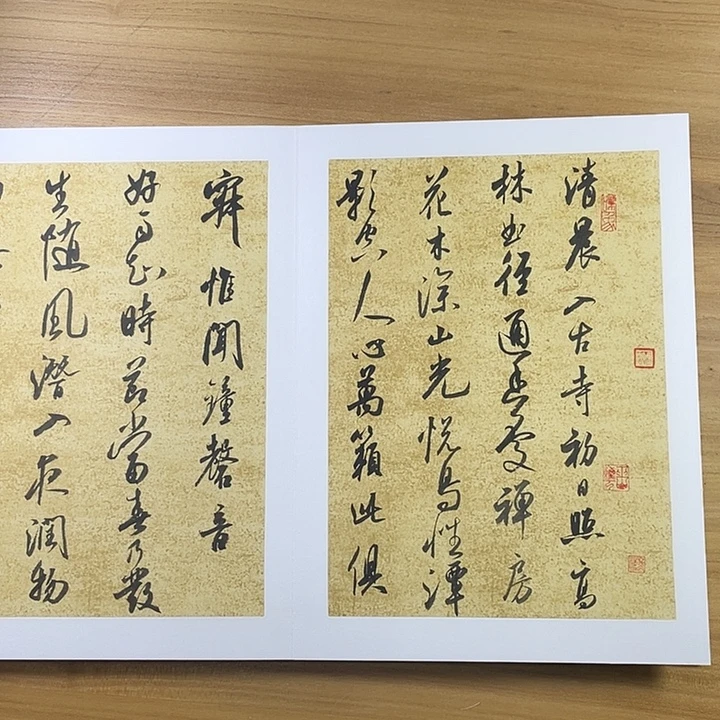 清晨入古寺初日照高
林曲徑通幽處禪房
花木深山光悅鳥性潭
影空人心萬籟此俱
寂惟聞鐘磬音
好雨知時節當春乃發
生随風潛入夜潤物